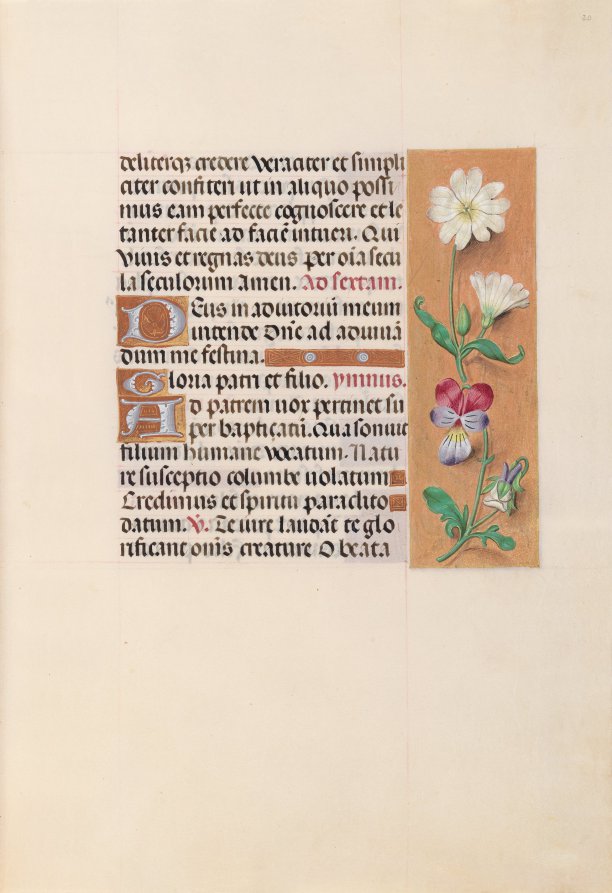 20
deliterqz credere veraciter et simpli
citer confiteri ut in aliquo possi
mus eam perfecte cognoscere et le
tanter faciē ad faciē intueri. Qui
vivis et regnas deus per oīa secu
la seculorum Amen. Ad sextam.
Deus in adiutoriū meum
intende Dnē ad adiuuā
dum me festina.
Gloria patri et filio. ymnus.
Ad patrem uox pertinet su
per baptizatū. Qua sonuit
filium humane vocatum. Natu
re susceptio columbe uolatum
Credimus et spiritu paraclito
datum. V. Te iure laudāt te glo
rificant om̄s creature O beata